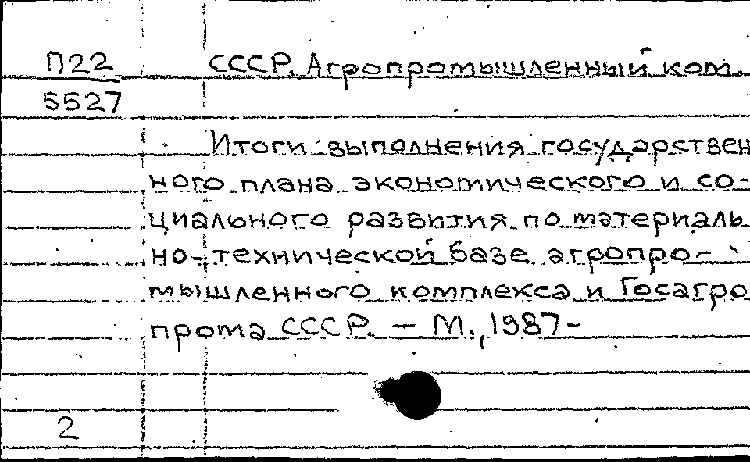 П22 СССР. Агропромышленный ком.
5527
Итоги выполнения государствен
ного плана экономического и со-
циального развития по материаль
но-технической базе агропро-
мышленного комплекса и Госагро
прома СССР. — М., 1987-
2